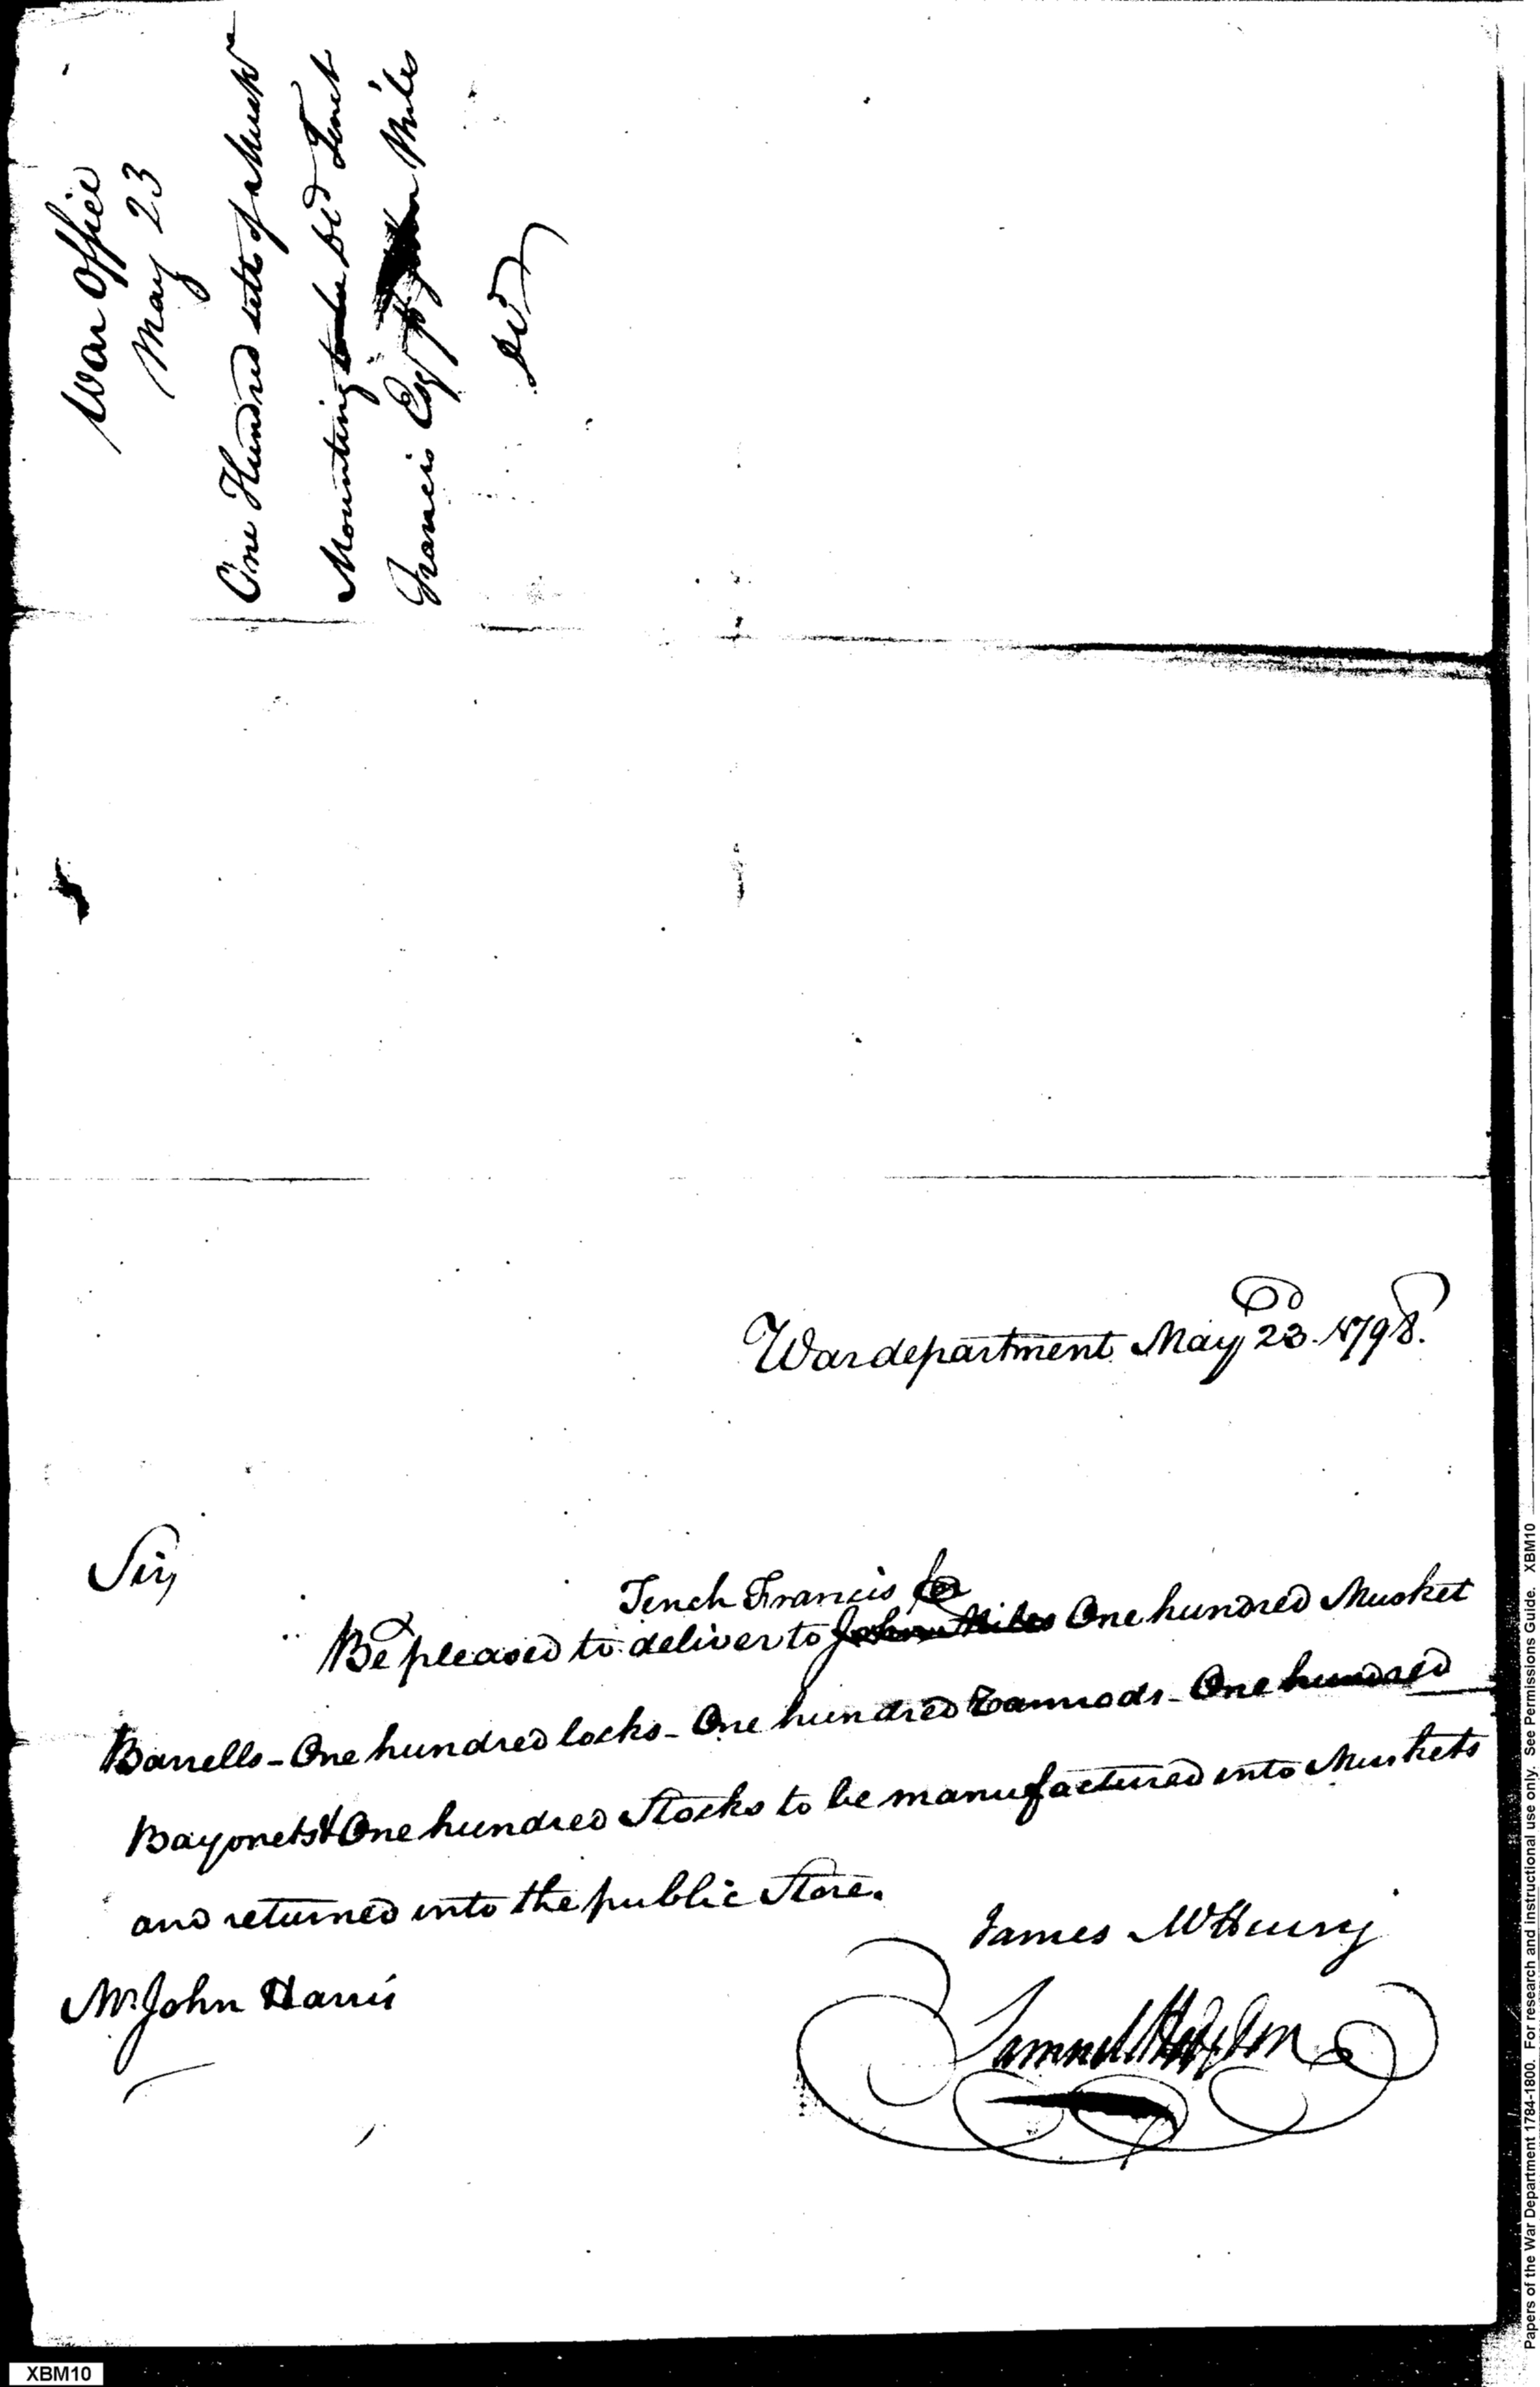 War Office
May 23
One Hundred setts of Musk
Mounting to be Dd Tench
Francis Esq John Miles
dd
War department May 23d. 1798.
Sir,
Tench Francis
Be pleased to deliver to John Miles One hundred Musket
Barrells - One hundred locks - One hundred Ramrods - One hundred
Bayonets & One hundred Stocks to be manufactured into Muskets
and returned into the public Store.
James McHenry
Mr. John Harris
Samuel Hodgdon
XBM10
Papers of the War Department 1784-1800. For research and instructional use only. See Permissions Guide. XBM10